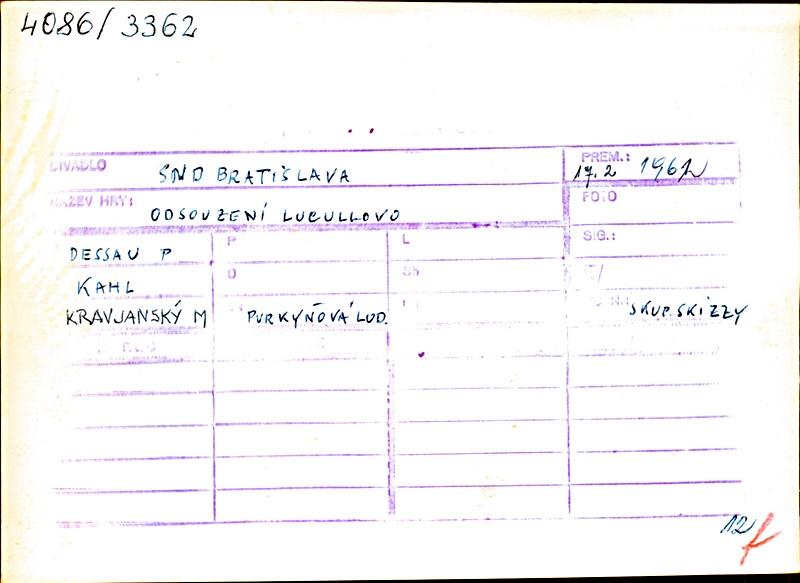 4086/3362
DIVADLO SND BRATISLAVA PREM.: 17.2 1962
NÁZEV HRY: ODSOUZENÍ LUCULLOVO FOTO
DESSAU P P L SIG.:
KAHL O Sh
KRAVJANSKÝ M PURKYŇOVÁ LUD. SKUP. SKIZZY
12